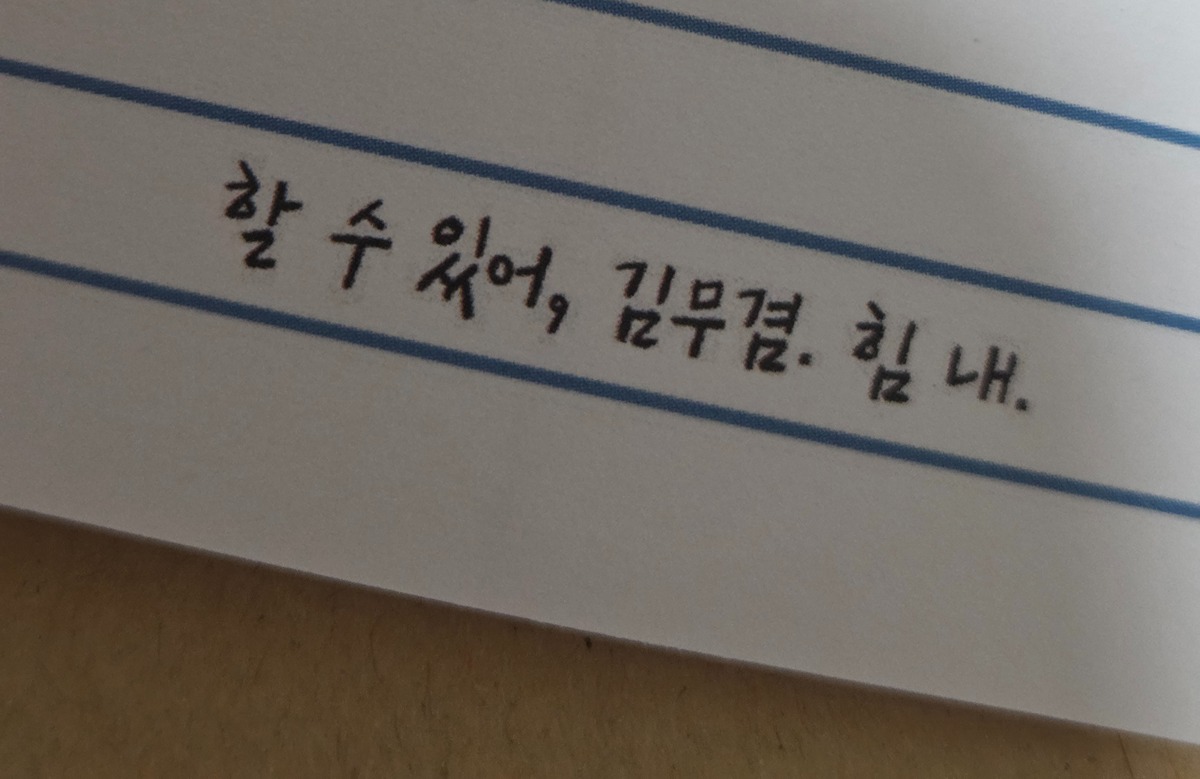 할 수 있어, 김무겸. 힘 내.